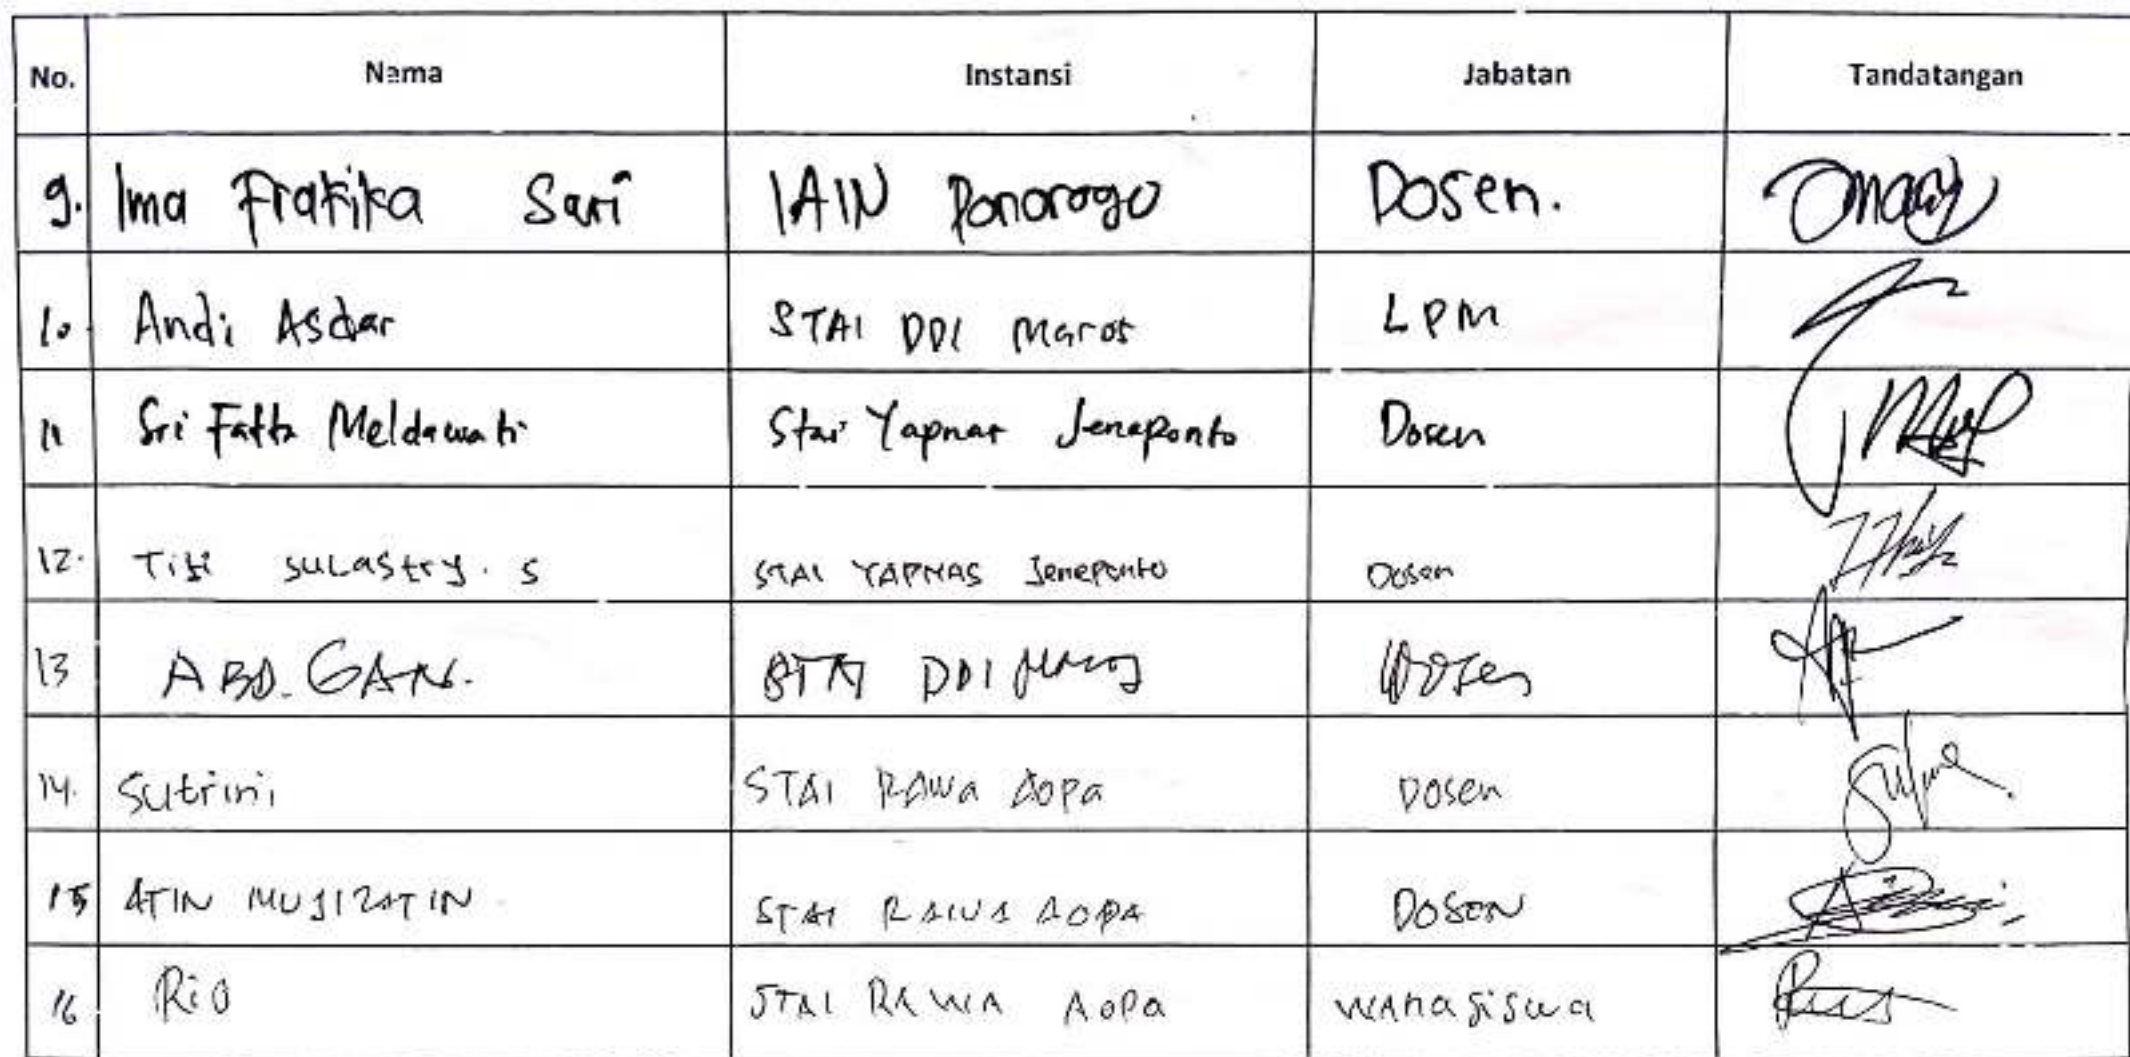 No. Nama Instansi Jabatan Tandatangan
9. Ima Fratika Sari IAIN Ponorogo Dosen.
10. Andi Asdar STAI DDI Maros LPM
11 Sri Fatta Meldawati Stai Yapnas Jeneponto Dosen
12. Titi SULASTRY. S STAI YAPNAS Jeneponto Dosen
13 ABD. GANI. STAI DDI Maros Dosen
14. Sutrini STAI RAWA Aopa Dosen
15 ATIN MUJIZATIN STAI RAWA AOPA DOSEN
16 Rio STAI RAWA AOPA MAHASISWA